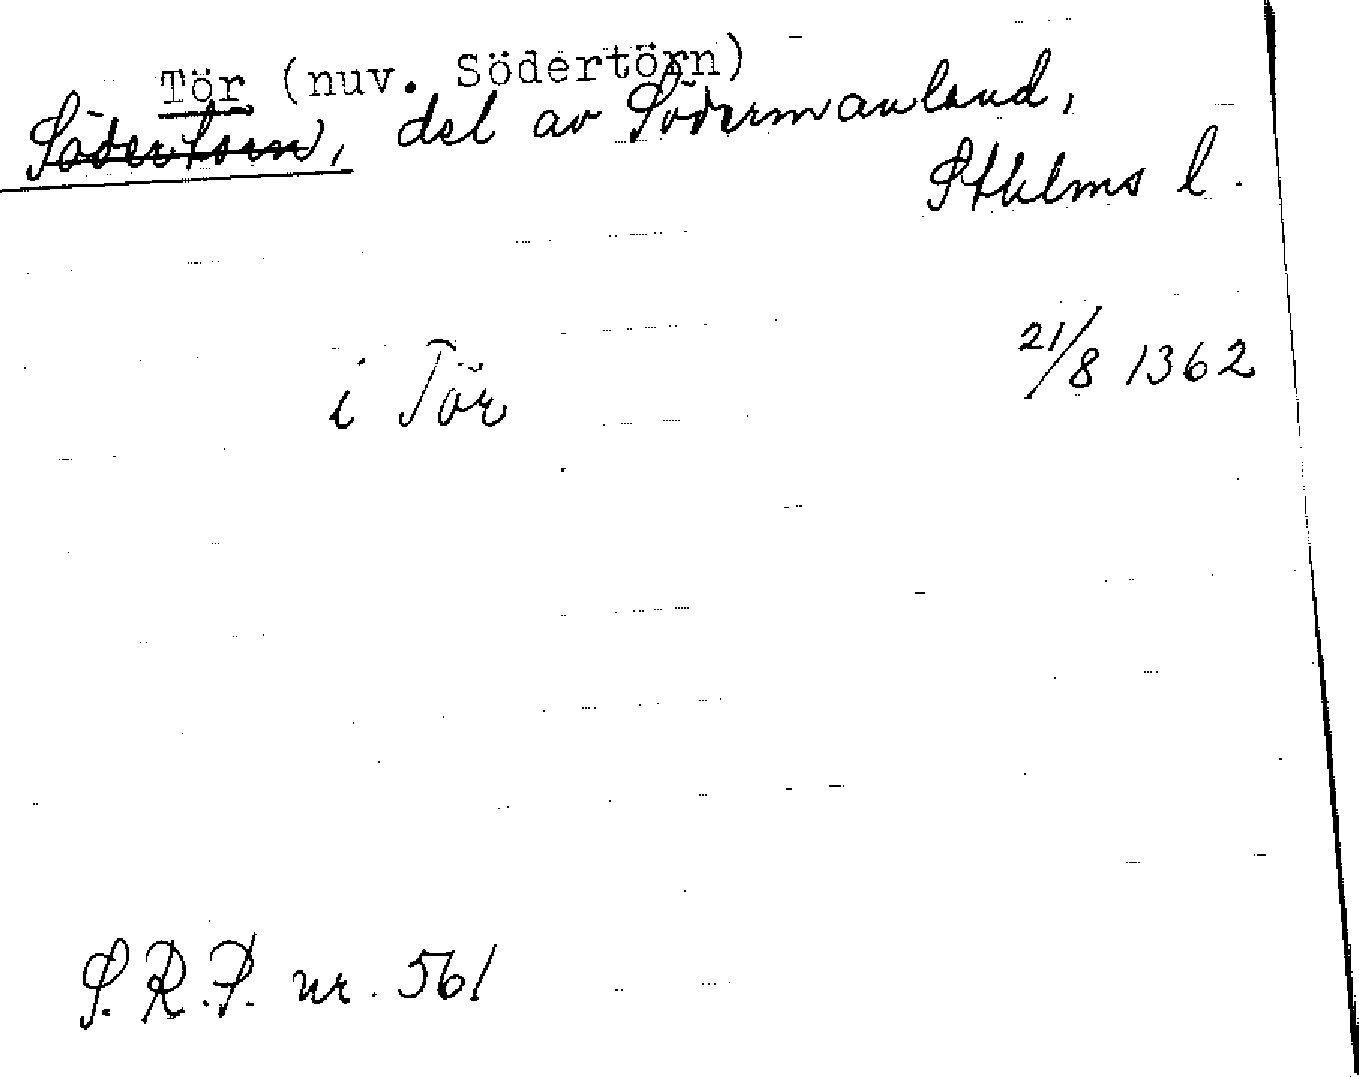 Tör (nuv. Södertörn)
Södertörn, del av Södermanland,
Sthlms l.
i Tör 21/8 1362
S.R.P. nr. 561